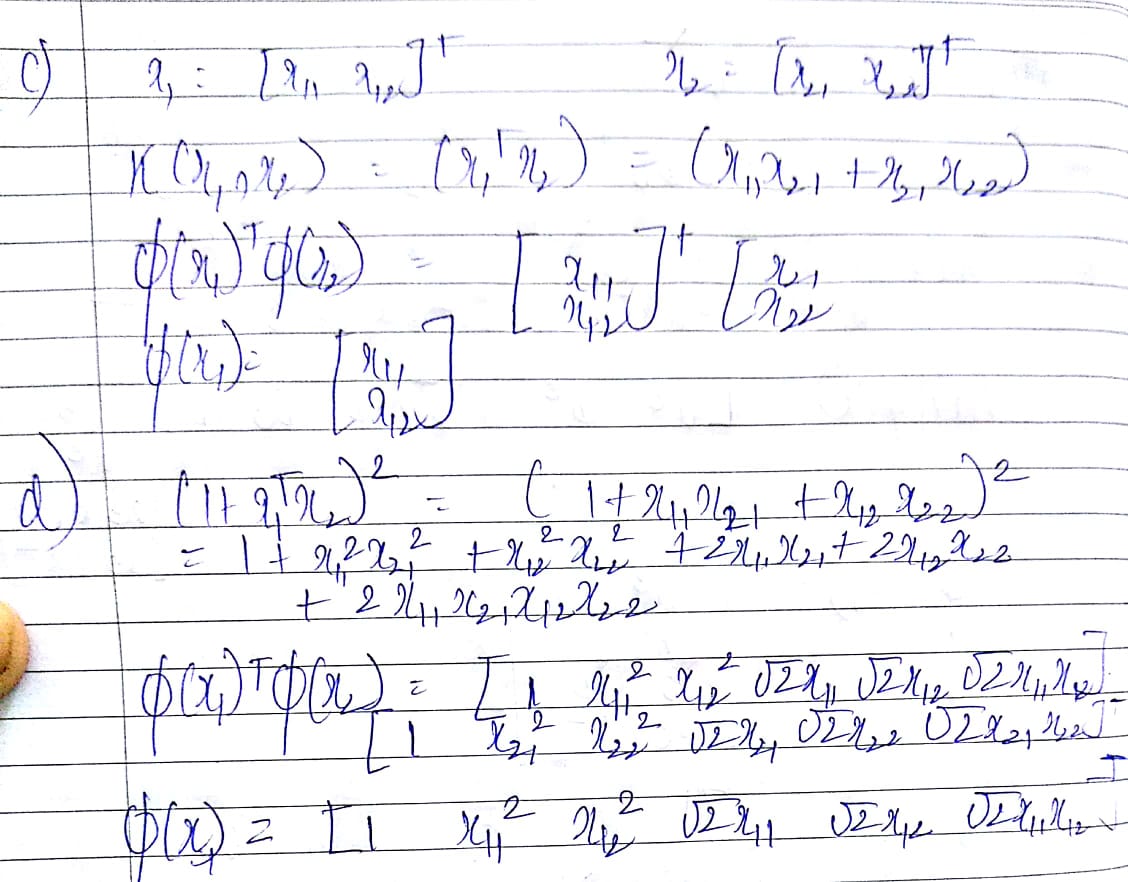 c) x₁ = [x₁₁ x₁₂]ᵀ x₂ = [x₂₁ x₂₂]ᵀ
K(x₁, x₂) = (x₁ᵀx₂) = (x₁₁x₂₁ + x₂₁x₂₂)
ϕ(x₁)ᵀϕ(x₂) = [x₁₁ x₁₂]ᵀ [x₂₁ x₂₂
ϕ(x₁) = [x₁₁ x₁₂]
d) (1+x₁ᵀx₂)² = (1+x₁₁x₂₁ + x₁₂x₂₂)²
= 1 + x₁₁²x₂₁² + x₁₂²x₂₂² + 2x₁₁x₂₁ + 2x₁₂x₂₂
+ 2x₁₁x₂₁x₁₂x₂₂
ϕ(x₁)ᵀϕ(x₂) = [1 x₁₁² x₁₂² √2x₁₁ √2x₁₂ √2x₁₁x₁₂]
[1 x₂₁² x₂₂² √2x₂₁ √2x₂₂ √2x₂₁x₂₂]ᵀ
ϕ(x₁) = [1 x₁₁² x₁₂² √2x₁₁ √2x₁₂ √2x₁₁x₁₂]ᵀ